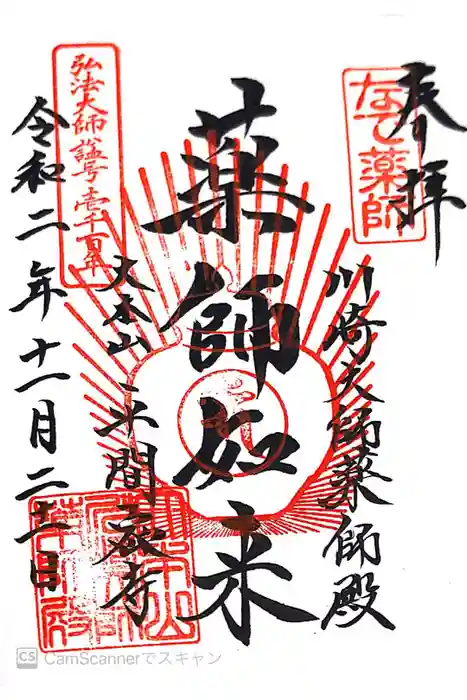 奉拝
なで薬師
川崎大師薬師殿
薬師如来
大本山 平間寺
弘法大師諡号壱千百年
令和二年十一月二十一日
CS CamScannerでスキャン